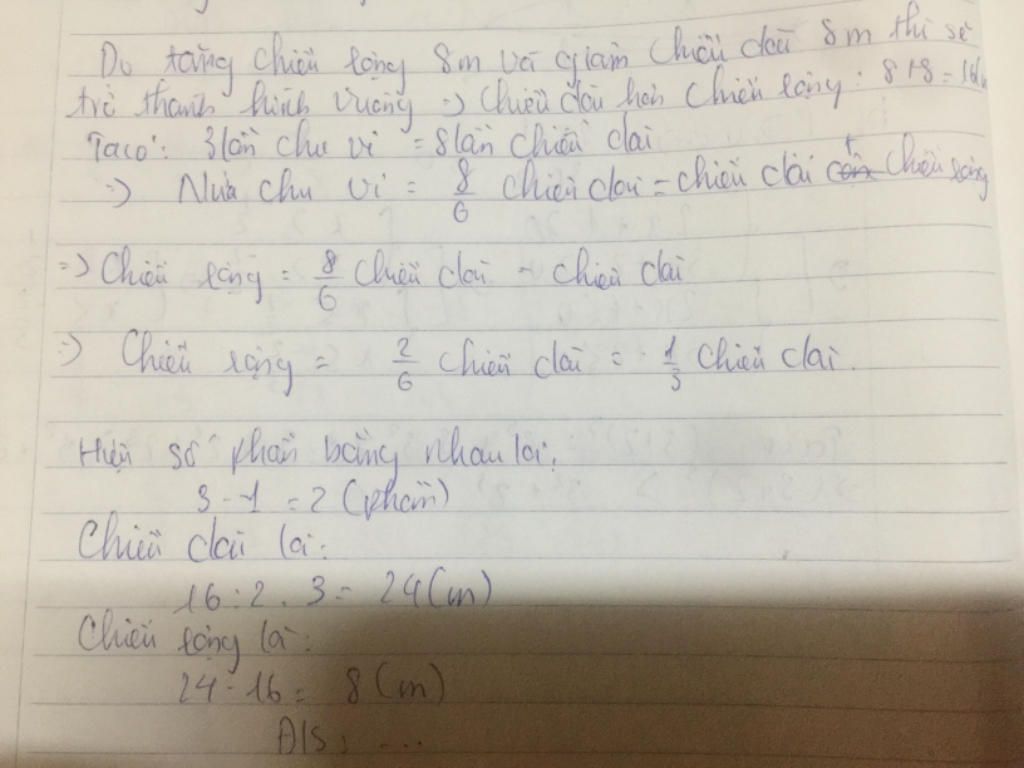 Do tăng chiều rộng 8m và giảm chiều dài 8m thì sẽ
trở thành hình vuông => chiều dài hơn chiều rộng: 8+8=16m
Ta có: 3 lần chu vi = 8 lần chiều dài
=> Nửa chu vi = 8/6 chiều dài = chiều dài + chiều rộng
=> Chiều rộng = 8/6 chiều dài - chiều dài
=> Chiều rộng = 2/6 chiều dài = 1/3 chiều dài.
Hiệu số phần bằng nhau là:
3 - 1 = 2 (phần)
Chiều dài là:
16 : 2 . 3 = 24 (m)
Chiều rộng là:
24 - 16 = 8 (m)
Đ/S: ...